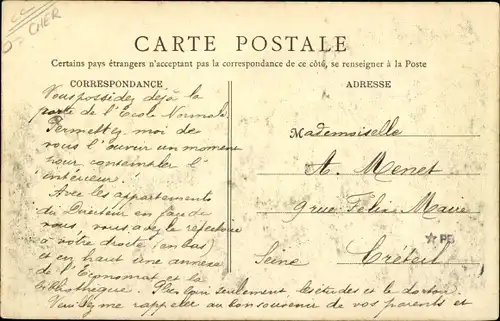 CHER
CARTE POSTALE
Certains pays étrangers n'acceptant pas la correspondance de ce côté, se renseigner à la Poste
CORRESPONDANCE
ADRESSE
Vous possidez déjà la
porte de l'Ecole Normale
Permettez moi de
vous l'ouvrir un moment
pour contempler l'
intérieur!
Avec les appartements
du Directeur en face de
vous, vous avez le refectoire
à votre droite (en bas)
et en haut une annexe
de l'Economat et la
bibliothèque. Plus loin seulement, les études et le dortoir
Veuillez me rappeler au bon souvenir de vos parents et
Mademoiselle
A. Menet
9 rue Félix Maire
Seine Créteil
PB